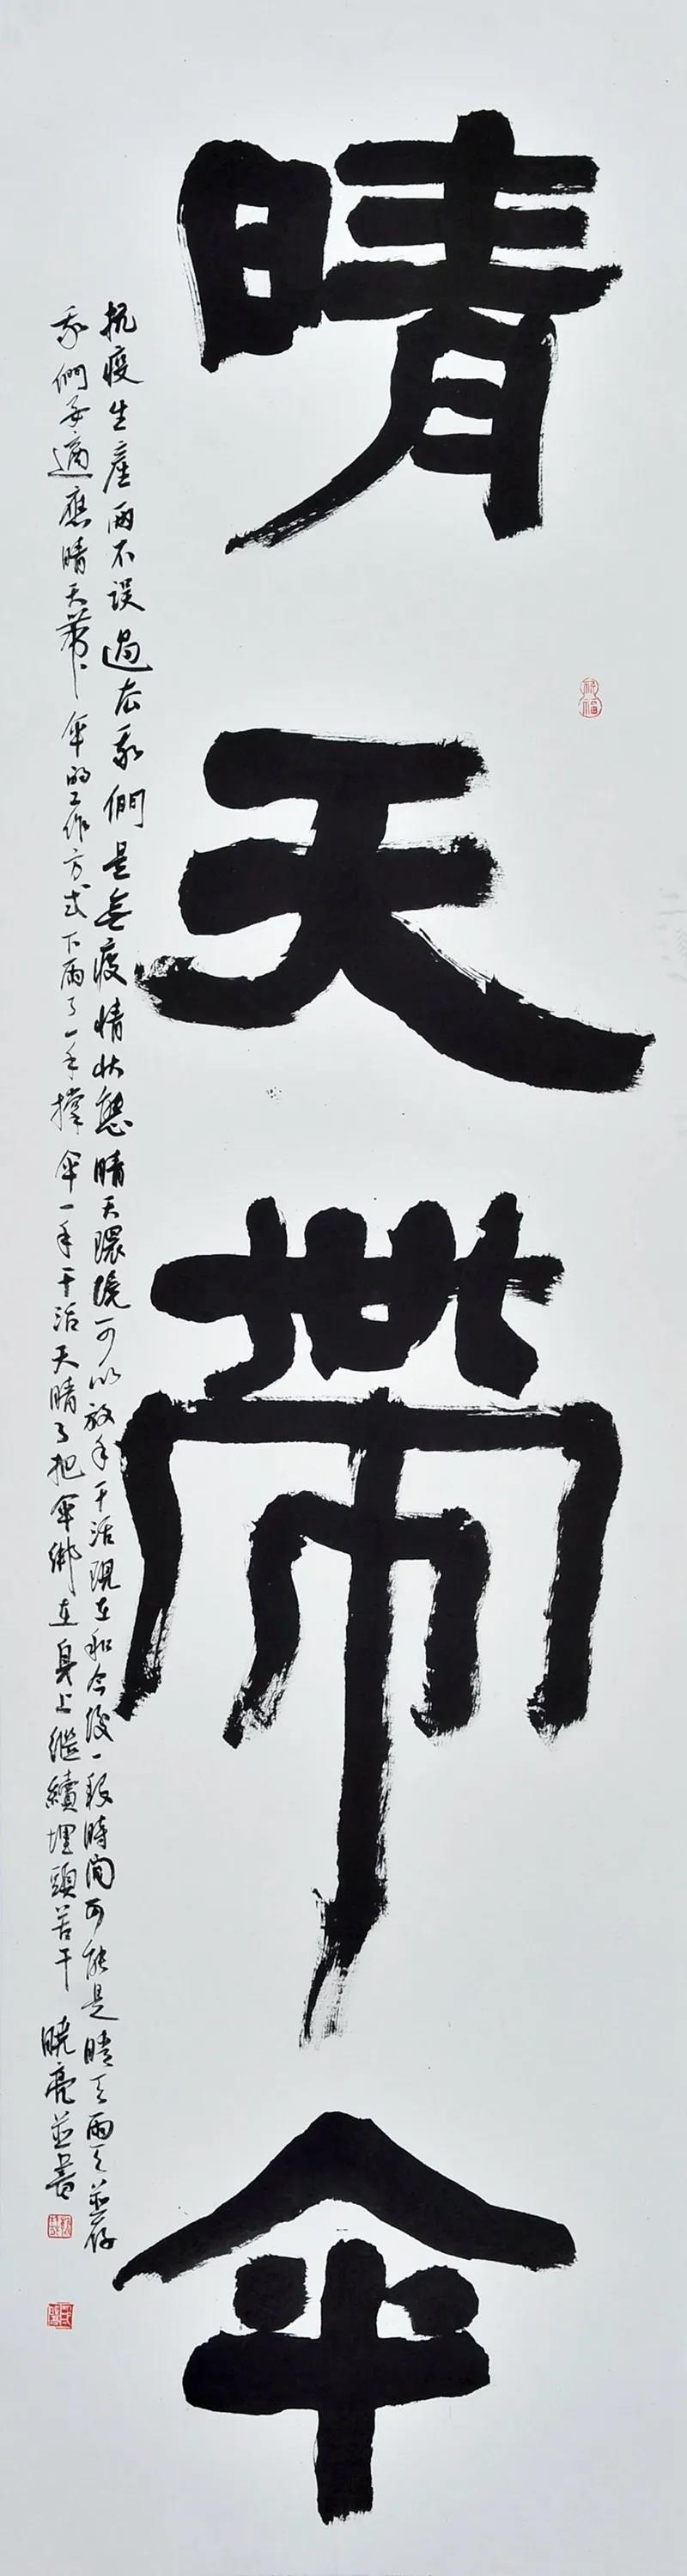 晴天帶傘
抗疫生產兩不误過去我們是無疫情状態晴天環境可以放手干活現在和今後一段時间可能是晴天雨天並存
我們要適應晴天帶傘的工作方式下雨了一手撑傘一手干活天晴了把傘綁在身上继續埋頭苦干 曉亮並書
祈福